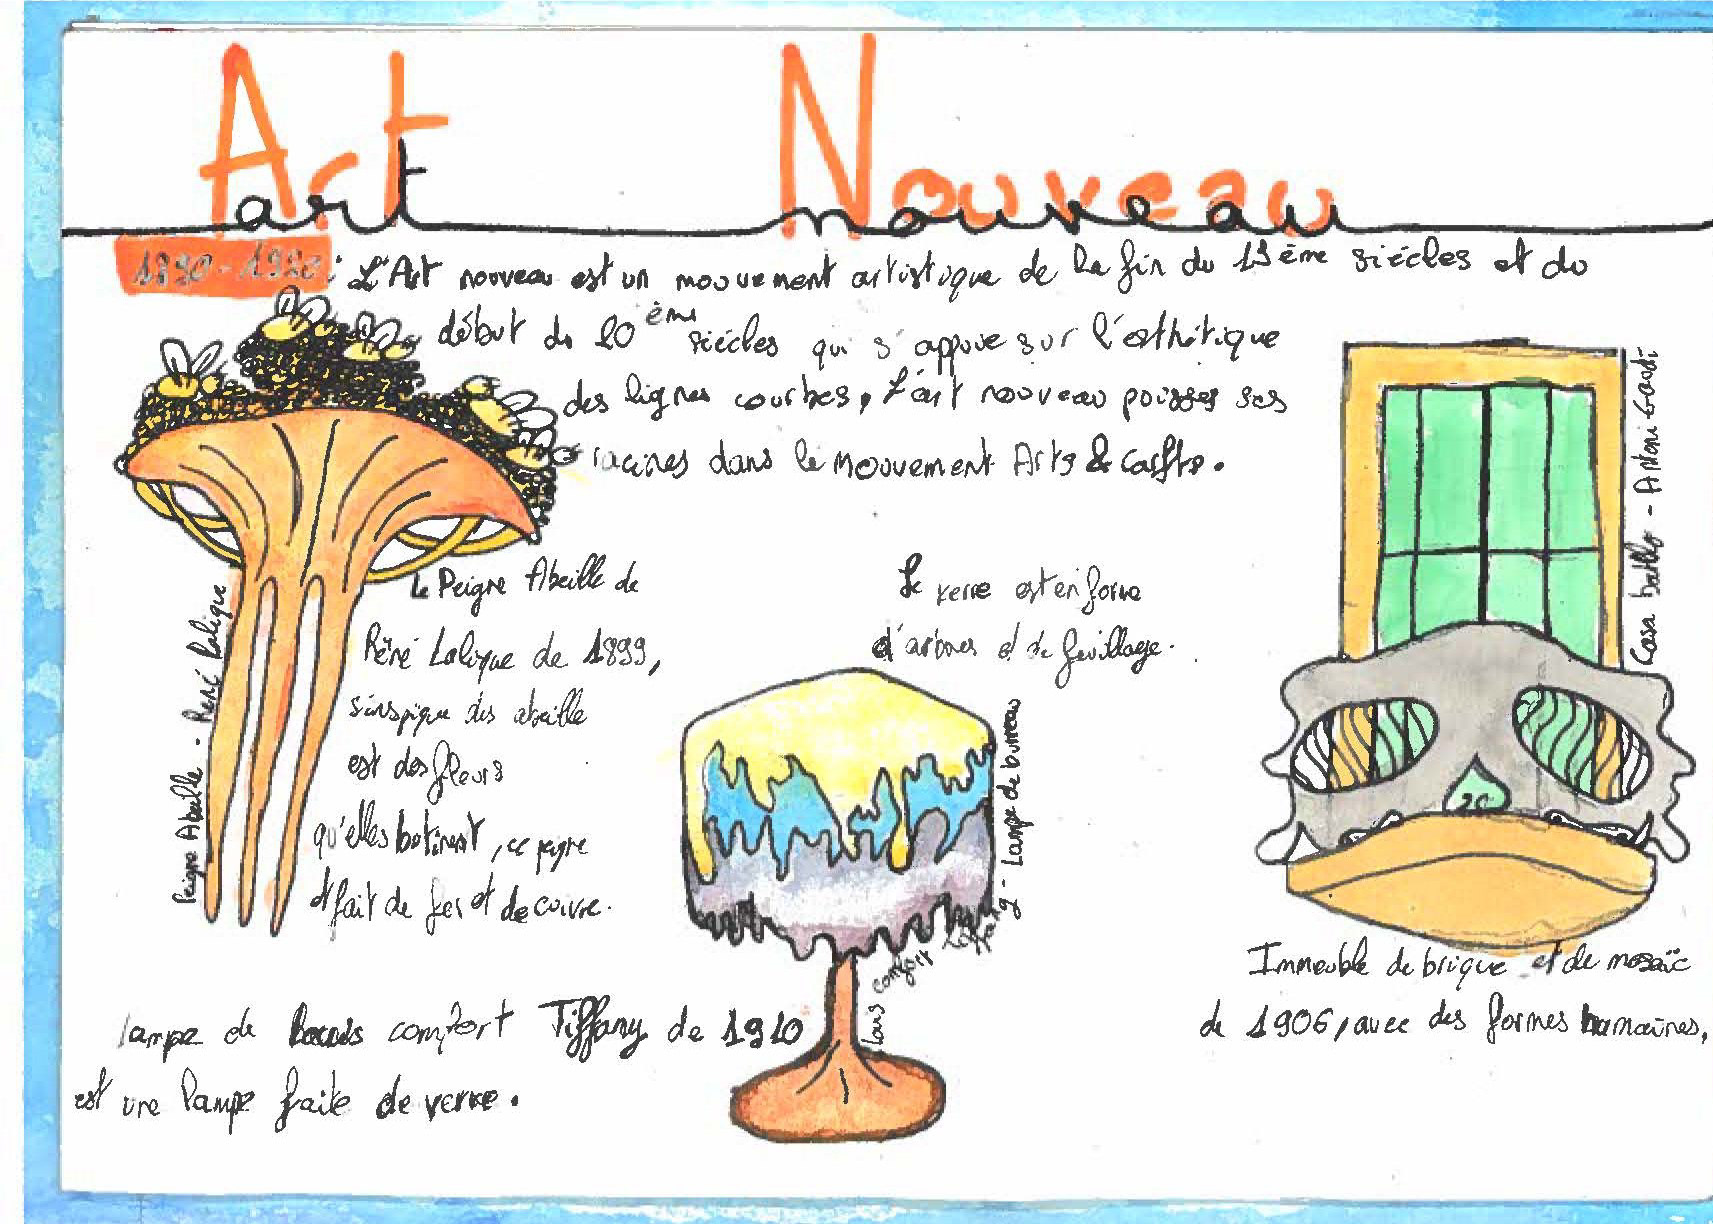 Art Nouveau
art nouveau
1890-1920 : L'Art nouveau est un mouvement artistique de la fin du 19ème siécles et du
début du 20ème siécles qui s'appuie sur l'esthétique
des lignes courbes, L'art nouveau pousses ses
racines dans le mouvement Arts &
Peigne Abeille - René Lalique
Le Peigne Abeille de
Réné Lalique de 1899,
des abeille
est des fleurs
qu'elles butinent, ce peigne
et fait de fer et de cuivre.
Le verre est en forme
d'arbres et de feuillage.
Louis comfort - Lampe de bureau
lampe de Louis comfort Tiffany de 1910
est une lampe faite de verre.
Casa batllo - Antoni Gaudi
Immeuble de brique et de mosaïc
de 1906, avec des formes humaines,